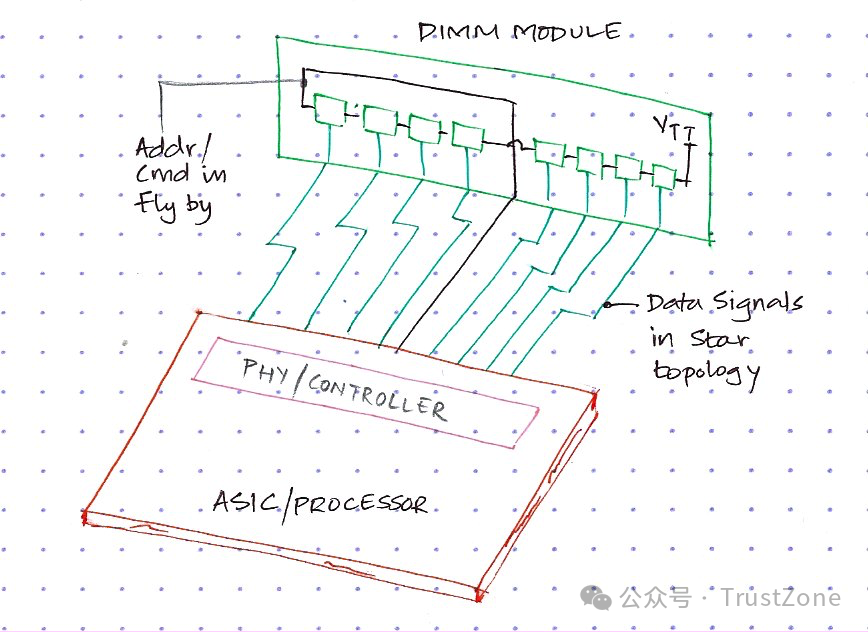 DIMM MODULE
VTT
Addr/
Cmd in
Fly by
Data Signals
in Star
topology
PHY/CONTROLLER
ASIC/PROCESSOR
公众号 · TrustZone